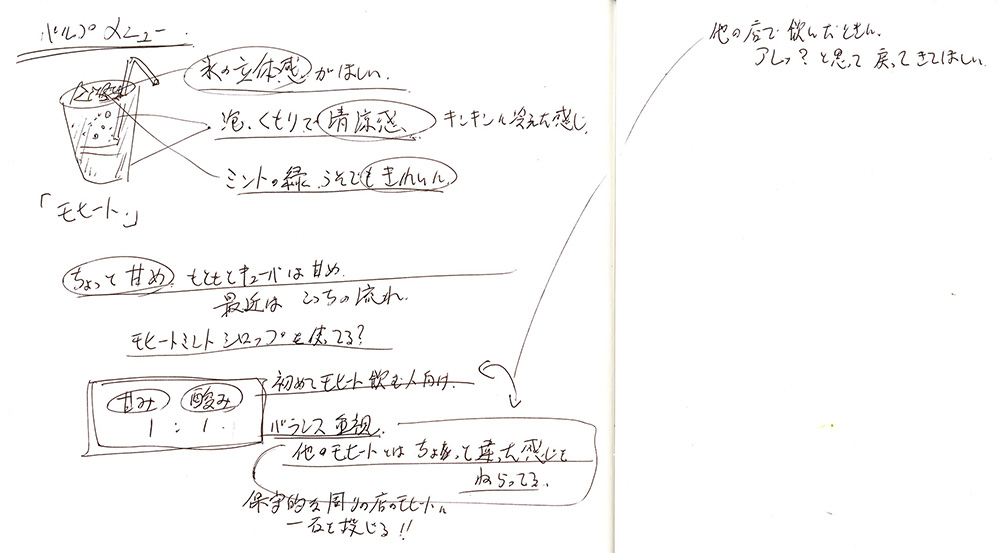 バルブメニュー
氷の立体感がほしい.
泡、くもりで清涼感 キンキンに冷えた感じ.
ミントの緑、うそでもきれいに
「モヒート.」
ちょっと甘め. もともとキューバは甘め.
最近はこっちの流れ.
モヒートミントシロップを使ってる?
甘み 酸み
1 : 1.
初めてモヒート飲む人向け.
バランス重視.
他のモヒートとはちょっと違った感じを
ねらってる.
保守的な周りの店のモヒートに
一石を投じる!!
他の店で飲んだときに.
アレっ?と思って戻ってきてほしい.